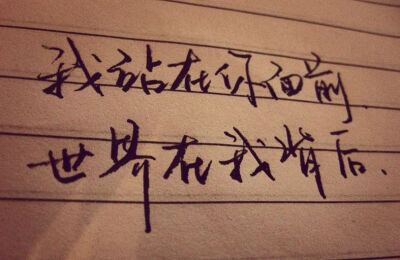 我站在你面前.
世界在我背后.